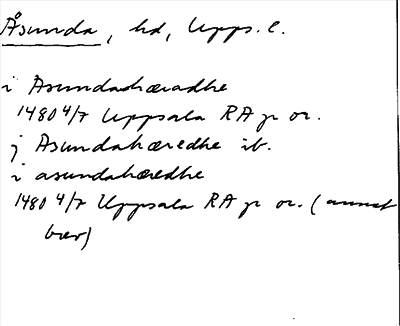 Åsunda, hd, Upps. l.
i Asundahæradhe
1480 4/7 Uppsala RA p or.
j Asundahæredhe ib.
i asundahæredhe
1480 4/7 Uppsala RA p or. (annat
brev)